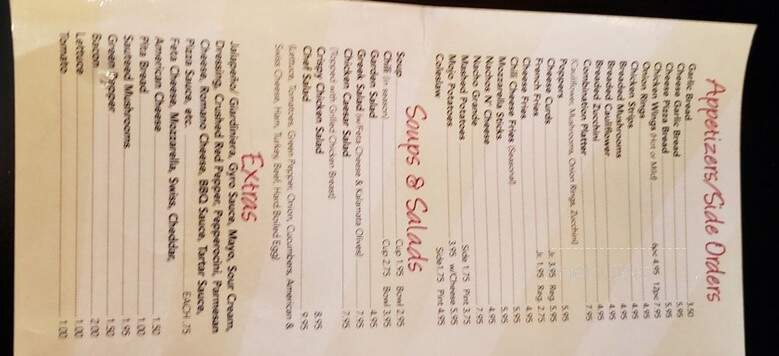 Appetizers/Side Orders
Garlic Bread 3.50
Cheese Garlic Bread 5.95
Cheese Pizza Bread 5.95
Chicken Wings (Hot or Mild) 6pc 4.95 12pc 7.95
Onion Rings 4.95
Chicken Strips 4.95
Breaded Mushrooms 4.95
Breaded Cauliflower 4.95
Breaded Zucchini 4.95
Combination Platter 7.95
(Cauliflower, Mushrooms, Onion Rings, Zucchini)
Poppers 5.95
Cheese Curds Jr. 3.95 Reg. 5.95
French Fries Jr. 1.95 Reg. 2.75
Cheese Fries 4.95
Chili Cheese Fries (Seasonal) 5.95
Mozzarella Sticks 5.95
Nachos N' Cheese 4.95
Nacho Grande 7.95
Mashed Potatoes Side 1.75 Pint 3.75
Mojo Potatoes 3.95 w/Cheese 5.95
Coleslaw Side 1.75 Pint 4.95
Soups & Salads
Soup Cup 1.95 Bowl 2.95
Chili (in season) Cup 2.75 Bowl 3.95
Garden Salad 4.95
Greek Salad (w/Feta Cheese & Kalamata Olives) 7.95
Chicken Caesar Salad 7.95
(Topped with Grilled Chicken Breast)
Crispy Chicken Salad 8.95
Chef Salad 9.95
(Lettuce, Tomatoes, Green Pepper, Onion, Cucumbers, American &
Swiss Cheese, Ham, Turkey, Beef, Hard Boiled Egg)
Extras
Jalapeño/ Giardiniera, Gyro Sauce, Mayo, Sour Cream,
Dressing, Crushed Red Pepper, Pepperocini, Parmesan
Cheese, Romano Cheese, BBQ Sauce, Tartar Sauce,
Pizza Sauce, etc. EACH .75
Feta Cheese, Mozzarella, Swiss, Cheddar,
American Cheese 1.50
Pita Bread 1.00
Sauteed Mushrooms 1.95
Green Pepper 1.50
Bacon 2.00
Lettuce 1.00
Tomato 1.00